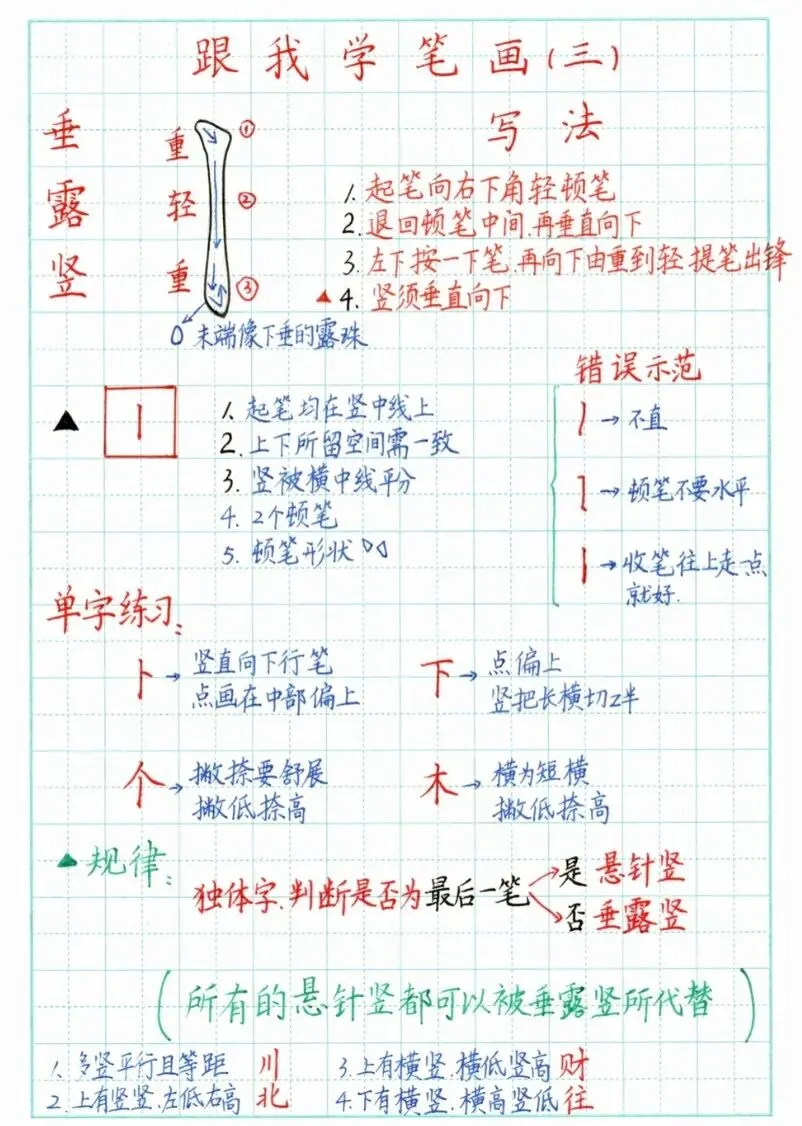 跟我学笔画(三)
垂露竖
重 ①
轻 ②
重 ③
末端像下垂的露珠
写法
1. 起笔向右下角轻顿笔
2. 退回顿笔中间.再垂直向下
3. 左下按一下笔.再向下由重到轻提笔出锋
▲4. 竖须垂直向下
▲
1. 起笔均在竖中线上
2. 上下所留空间需一致
3. 竖被横中线平分
4. 2个顿笔
5. 顿笔形状
错误示范
→不直
→顿笔不要水平
→收笔往上走一点
就好.
单字练习:
卜→竖直向下行笔
点画在中部偏上
下→点偏上
竖把长横切2半
个→撇捺要舒展
撇低捺高
木→横为短横
撇低捺高
▲规律:
独体字.判断是否为最后一笔
→是 悬针竖
→否 垂露竖
(所有的悬针竖都可以被垂露竖所代替)
1. 多竖平行且等距 川
2. 上有竖竖.左低右高 北
3. 上有横竖.横低竖高 财
4. 下有横竖.横高竖低 往